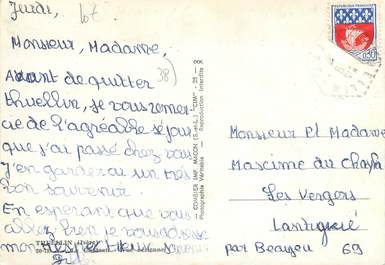 Jeudi,
lot.
38)
Monsieur, Madame,
Avant de quitter
thuellin, je vous remer
cie de l'agréable séjou
que j'ai passé chez vous
J'en garderai un très
bon souvenir.
En esperant que vous
allez bien je vous adresse
mon respectueux
THUELLIN (Isère)
COMBIER IMP. MACON (S.-et-L.) "CIM"
Photographie Véritable - Reproduction Interdite
REPUBLIQUE FRANÇAISE
0,30
Monsieur Et Madame
Maxime du Chayla
Les Vergers
Lantignié
par Beaujeu 69